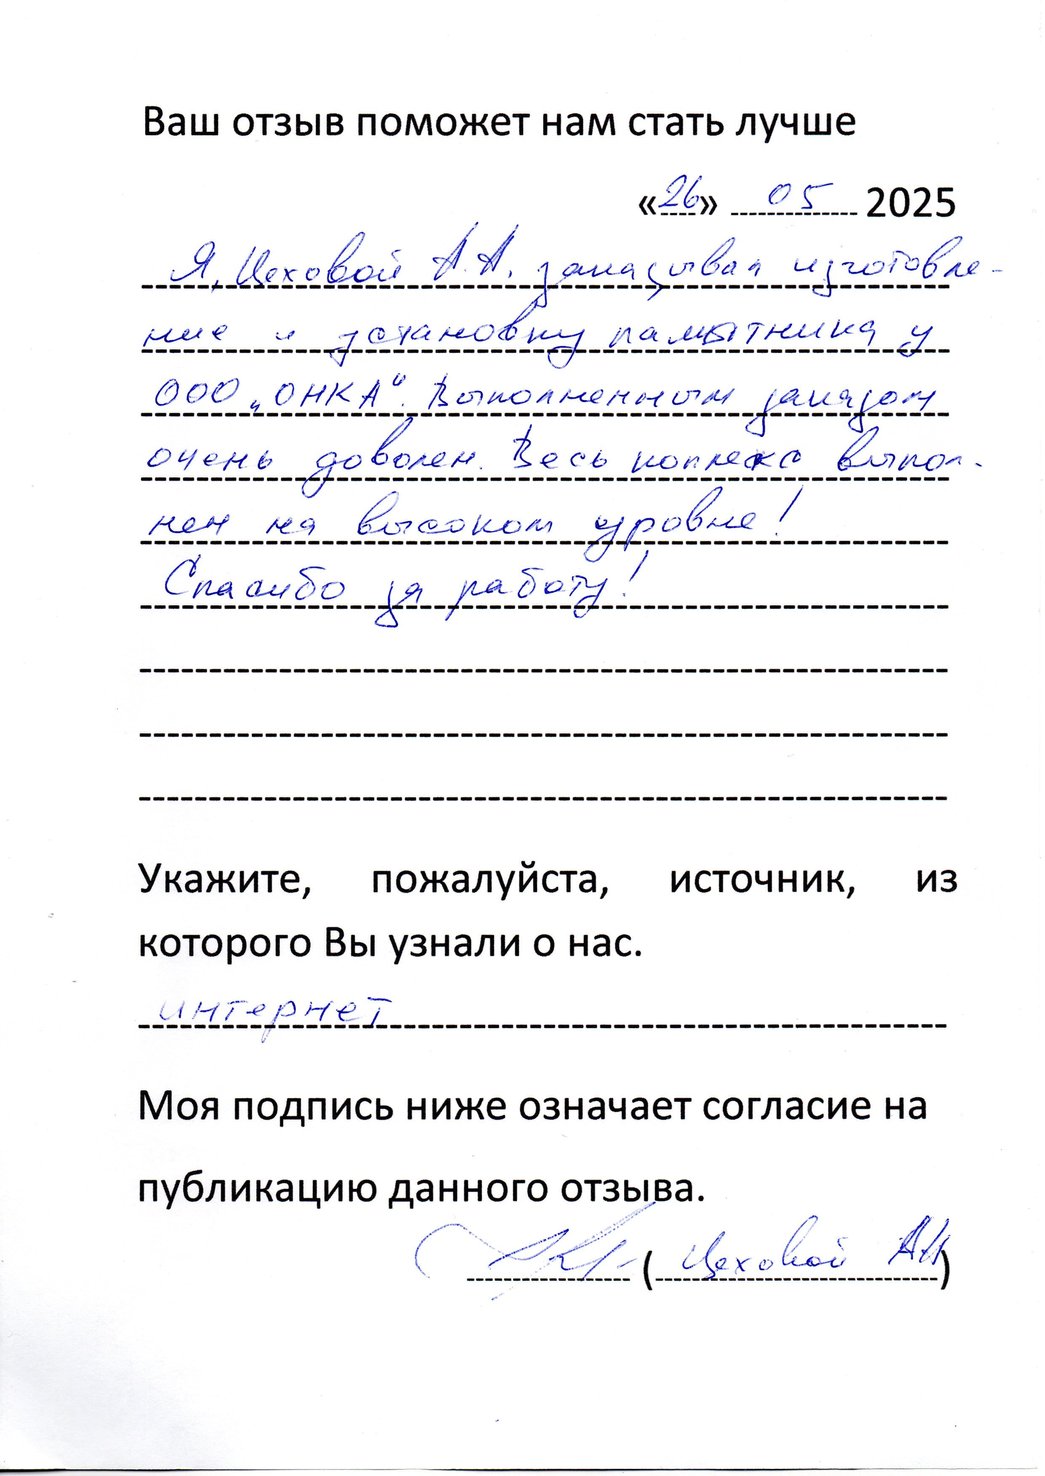 Ваш отзыв поможет нам стать лучше
«26» 05 2025
Я, Цеховой А.А. заказывал изготовле-
ние и установку памятника у
ООО „ОНКА“. Выполненным заказом
очень доволен. Весь коплекс выпол-
нен на высоком уровне!
Спасибо за работу!
Укажите, пожалуйста, источник, из
которого Вы узнали о нас.
интернет
Моя подпись ниже означает согласие на
публикацию данного отзыва.
(Цеховой АА)